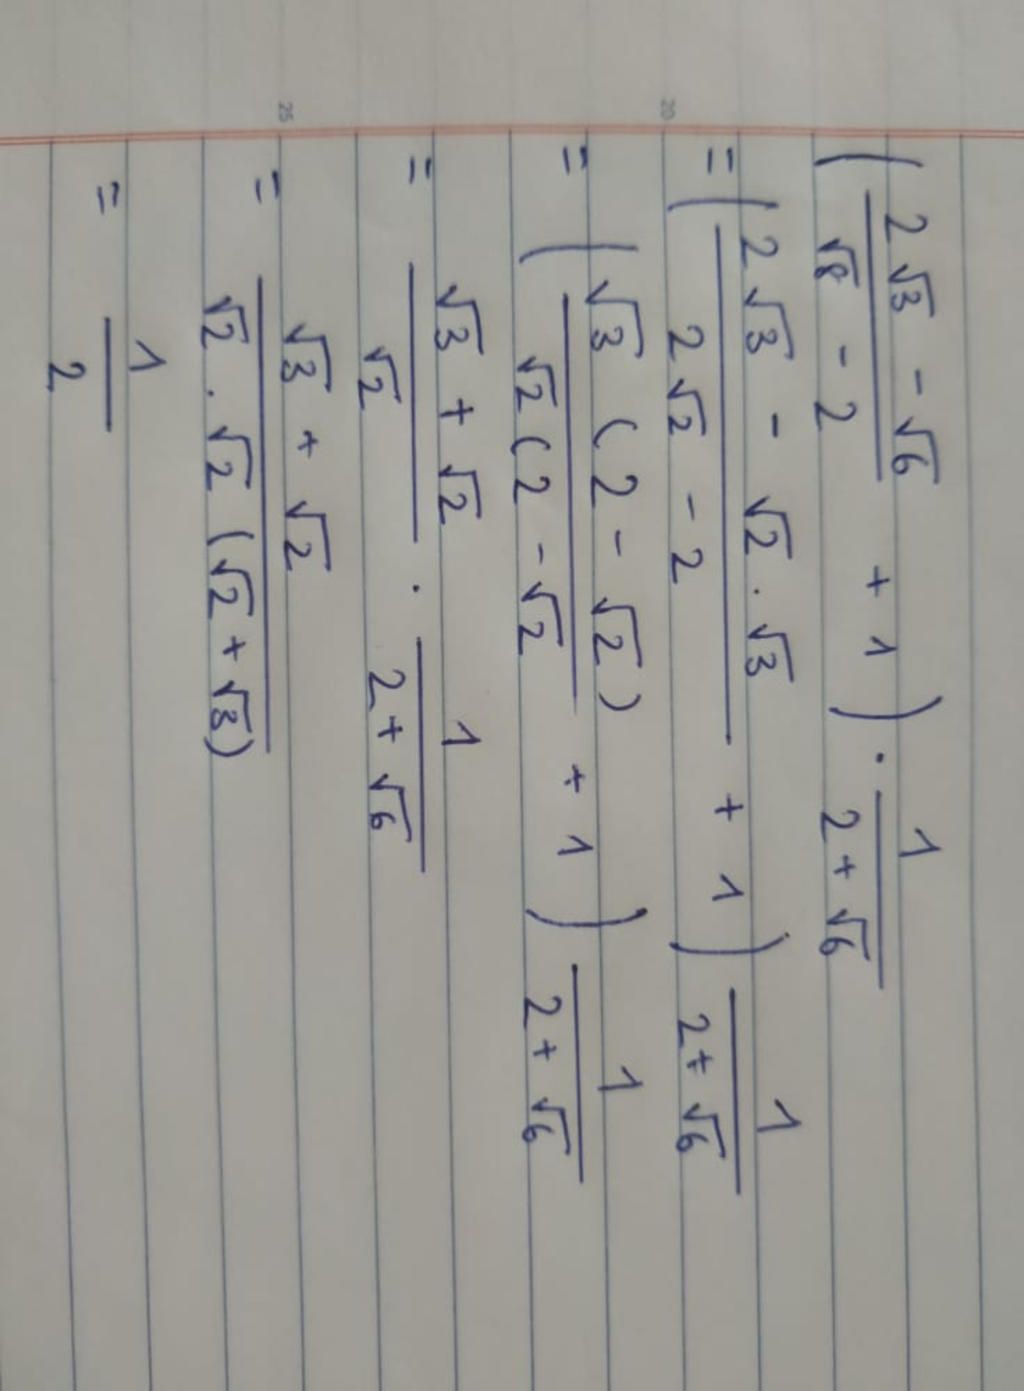 ( (2√3 - √6) / (√8 - 2) + 1 ) · 1 / (2 + √6)
= ( (2√3 - √2 · √3) / (2√2 - 2) + 1 ) 1 / (2 + √6)
= ( √3 (2 - √2) / √2 (2 - √2 + 1 ) 1 / (2 + √6)
= (√3 + √2) / √2 · 1 / (2 + √6)
= (√3 + √2) / √2 · √2 (√2 + √3)
= 1 / 2
20
25